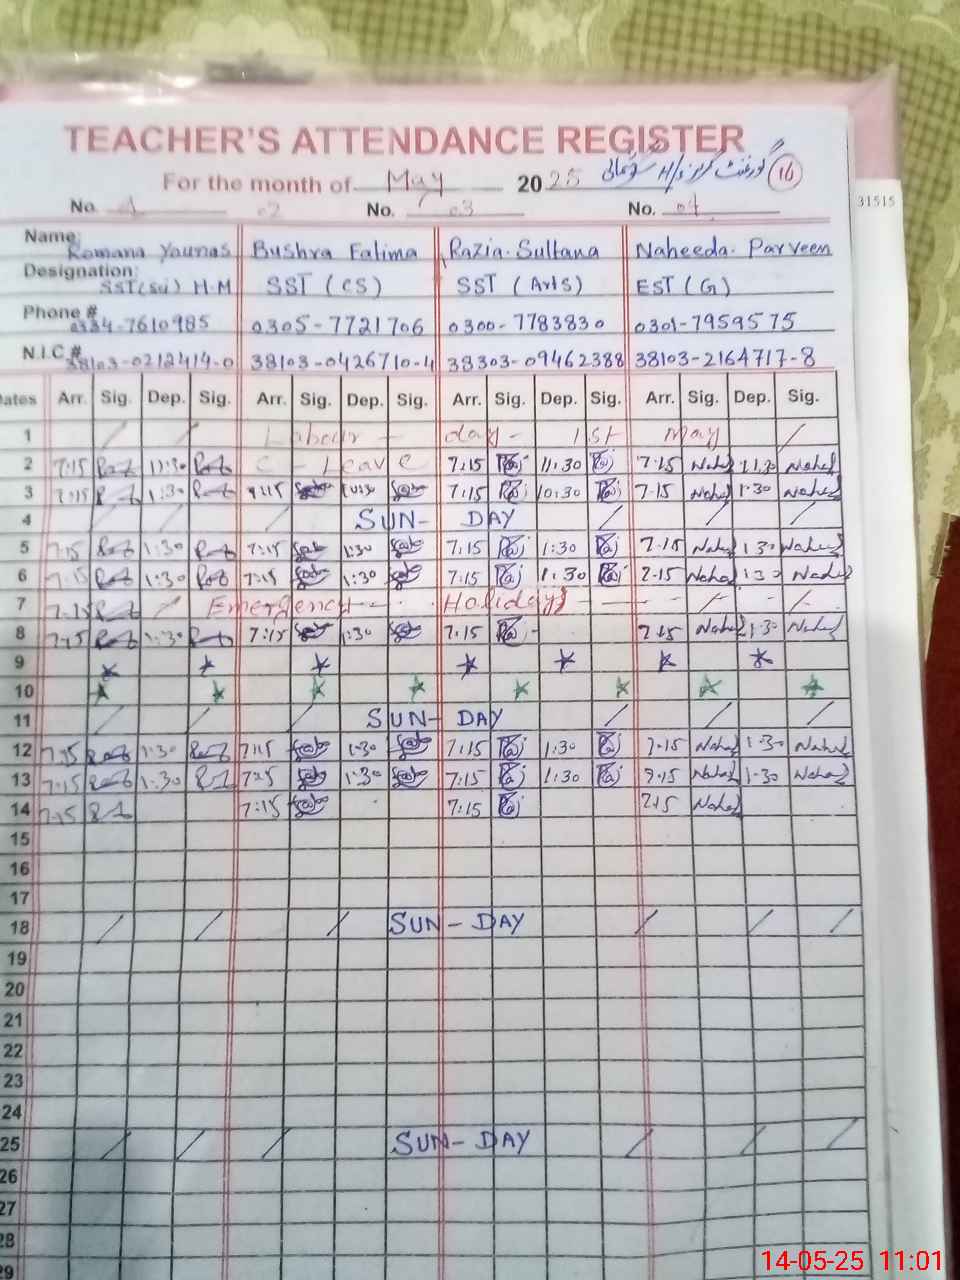 TEACHER'S ATTENDANCE REGISTER
For the month of May 2025 16
No. 1 02 No. 03 No. 04
31515
Name: Romana Younas Bushra Fatima Razia. Sultana Naheeda. Parveen
Designation: SST(Sci) H.M SST (CS) SST (Arts) EST (G)
Phone # 0334-7610985 0305-7721706 0300-7783830 0301-7959575
N.I.C # 38103-0212414-0 38103-0426710-4 38303-09462388 38103-2164717-8
Dates Arr. Sig. Dep. Sig. Arr. Sig. Dep. Sig. Arr. Sig. Dep. Sig. Arr. Sig. Dep. Sig.
1 Labour day - 1st May
2 7:15 11:30 C - Leave 7:15 11:30 7:15 Nahed 11:30 Nahed
3 7:15 1:30 7:15 10:30 7:15 10:30 7:15 Nahed 1:30 Nahed
4 SUN- DAY
5 7:15 1:30 7:15 1:30 7:15 1:30 7:15 Nahed 1:30 Nahed
6 7:15 1:30 7:15 1:30 7:15 1:30 7:15 Nahed 1:30 Nahed
7 7:15 Emergency Holiday
8 7:15 1:30 7:15 1:30 7:15 7:15 Nahed 1:30 Nahed
9
10
11 SUN- DAY
12 7:15 1:30 7:15 1:30 7:15 1:30 7:15 Nahed 1:30 Nahed
13 7:15 1:30 7:15 1:30 7:15 1:30 7:15 Nahed 1:30 Nahed
14 7:15 7:15 7:15 7:15 Nahed
15
16
17
18 SUN- DAY
19
20
21
22
23
24
25 SUN- DAY
26
27
28
29
14-05-25 11:01